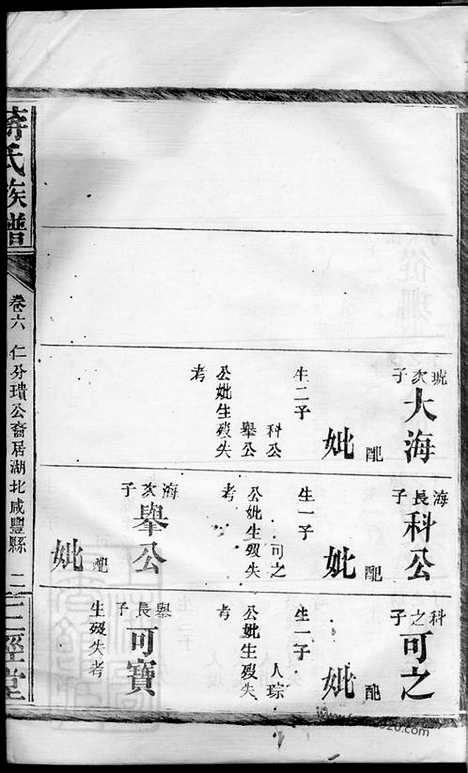 琥次子
大海
配
妣
生二子
科公
舉公
公妣生歿失
考
海長子
科公
配
妣
生一子
可之
公妣生歿失
考
海次子
舉公
配
妣
科之子
可之
配
妣
生一子
人琮
公妣生歿失
考
舉長子
可寶
生歿失考
蔣氏族譜
卷六
仁分璝公裔居湖北咸豐縣
二
三徑堂